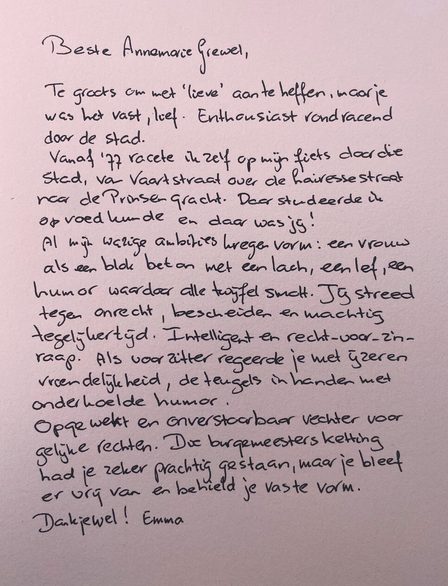 Beste Annemarie Grewel,
Te groots om met 'lieve' aan te heffen, maar je
was het vast, lief. Enthousiast rondracend
door de stad.
Vanaf '77 racete ik zelf op mijn fiets door die
stad, van Vaartstraat over de Lairessestraat
naar de Prinsengracht. Daar studeerde ik
opvoedkunde en daar was jij!
Al mijn wazige ambities kregen vorm: een vrouw
als een blok beton met een lach, een lef, een
humor waardoor alle twijfel smolt. Jij streed
tegen onrecht, bescheiden en machtig
tegelijkertijd. Intelligent en recht-voor-z'n-
raap. Als voorzitter regeerde je met ijzeren
vriendelijkheid, de teugels in handen met
onderkoelde humor.
Opgewekt en onverstoorbaar vechter voor
gelijke rechten. Die burgemeestersketting
had je zeker prachtig gestaan, maar je bleef
er vrij van en behield je vaste vorm.
Dankjewel! Emma